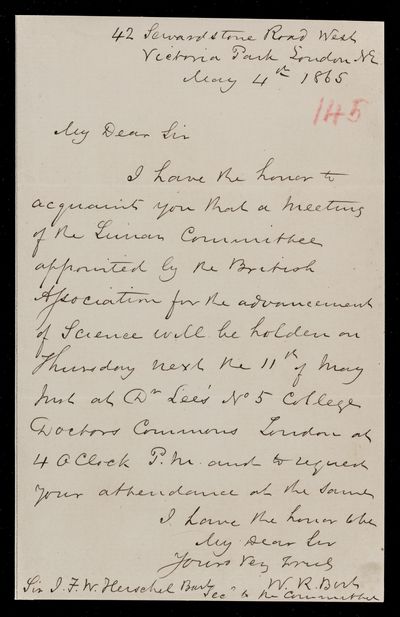 42 Sewardstone Road West
Victoria Park London NE
May 4th 1865
145
My Dear Sir
I have the honor to
acquaint you that a meeting
of the Lunar Committee
appointed by the British
Association for the advancement
of Science will be holden on
Thursday next the 11th of May
Inst at Dr Lee's No 5 College
Doctors Commons London at
4 O Clock P.M. and to request
your attendance at the same
I have the honor to be
My Dear Sir
Yours very truly
W. R. Birt
Secy to the Committee
Sir J. F. W. Herschel Bart